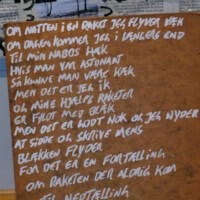 OM NATTEN I EN RAKET JEG FLYVER VÆK
OM DAGEN KOMMER JEG I LÆNGERE END
TIL MIN NABOS HÆK
HVIS MAN VAR ASTONAUT
SÅ KUNNE MAN VÆRE KÆK
MEN DET ER JEG IK
OG MINE HJÆLPE RAKETER
ER FYLDT MED BLÆK
MEN DET ER GODT NOK OG JEG NYDER
AT SIDDE OG SKRIVE MENS
BLÆKKEN FLYDER
FOR DET ER EN FORTÆLLING
OM RAKETEN DER ALDRIG KOM
TIL NEDTÆLLING